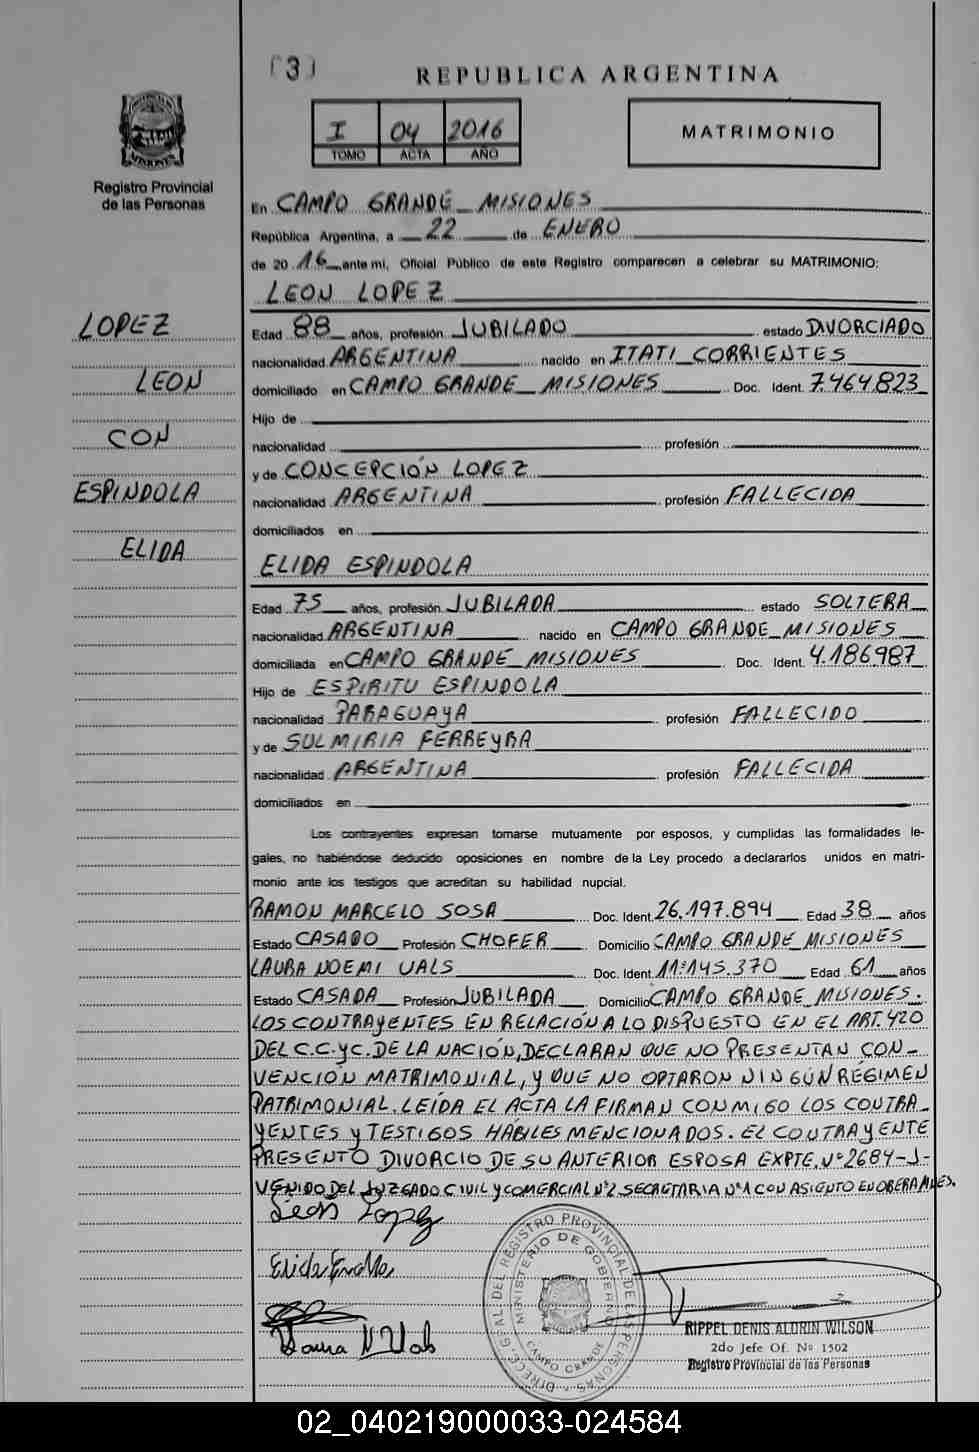 (3)
REPUBLICA ARGENTINA
I 04 2016
TOMO ACTA AÑO
MATRIMONIO
MISIONES
Registro Provincial
de las Personas
En CAMPO GRANDE MISIONES
República Argentina, a 22 de ENERO
de 20 16 ante mi, Oficial Público de este Registro comparecen a celebrar su MATRIMONIO:
LEON LOPEZ
LOPEZ
LEON
CON
ESPINDOLA
ELIDA
Edad 88 años, profesión JUBILADO estado DIVORCIADO
nacionalidad ARGENTINA nacido en ITATI CORRIENTES
domiciliado en CAMPO GRANDE MISIONES Doc. Ident. 7.464.823
Hijo de
nacionalidad profesión
y de CONCEPCIÓN LOPEZ
nacionalidad ARGENTINA profesión FALLECIDA
domiciliados en
ELIDA ESPINDOLA
Edad 75 años, profesión JUBILADA estado SOLTERA
nacionalidad ARGENTINA nacido en CAMPO GRANDE MISIONES
domiciliada en CAMPO GRANDE MISIONES Doc. Ident. 4.186.987
Hijo de ESPIRITU ESPINDOLA
nacionalidad PARAGUAYA profesión FALLECIDO
y de SULMIRIA FERREYRA
nacionalidad ARGENTINA profesión FALLECIDA
domiciliados en
Los contrayentes expresan tomarse mutuamente por esposos, y cumplidas las formalidades le-
gales, no habiéndose deducido oposiciones en nombre de la Ley procedo a declararlos unidos en matri-
monio ante los testigos que acreditan su habilidad nupcial.
RAMON MARCELO SOSA Doc. Ident. 26.197.894 Edad 38 años
Estado CASADO Profesión CHOFER Domicilio CAMPO GRANDE MISIONES
LAURA NOEMI UALS Doc. Ident. 11.145.370 Edad 61 años
Estado CASADA Profesión JUBILADA Domicilio CAMPO GRANDE MISIONES.
LOS CONTRAYENTES EN RELACIÓN A LO DISPUESTO EN EL ART. 420
DEL C.C.yC. DE LA NACIÓN, DECLARAN QUE NO PRESENTAN CON-
VENCIÓN MATRIMONIAL, y QUE NO OPTARON NINGÚN RÉGIMEN
PATRIMONIAL. LEÍDA EL ACTA LA FIRMAN CONMIGO LOS CONTRA-
YENTES y TESTIGOS HÁBILES MENCIONADOS. EL CONTRAYENTE
PRESENTO DIVORCIO DE SU ANTERIOR ESPOSA EXPTE. Nº 2684-J-
VENIDO DEL JUZGADO CIVIL y COMERCIAL Nº2 SECRETARIA Nº1 CON ASIENTO EN OBERA MNES.
Leon Lopez
Laura N Uals
DIREC. G.RAL DEL REGISTRO PROVINCIAL DE LAS PERSONAS
MINISTERIO DE GOBIERNO
CAMPO GRANDE
RIPPEL DENIS ALDRIN WILSON
2do Jefe Of. Nº 1502
Registro Provincial de las Personas
02_040219000033-024584